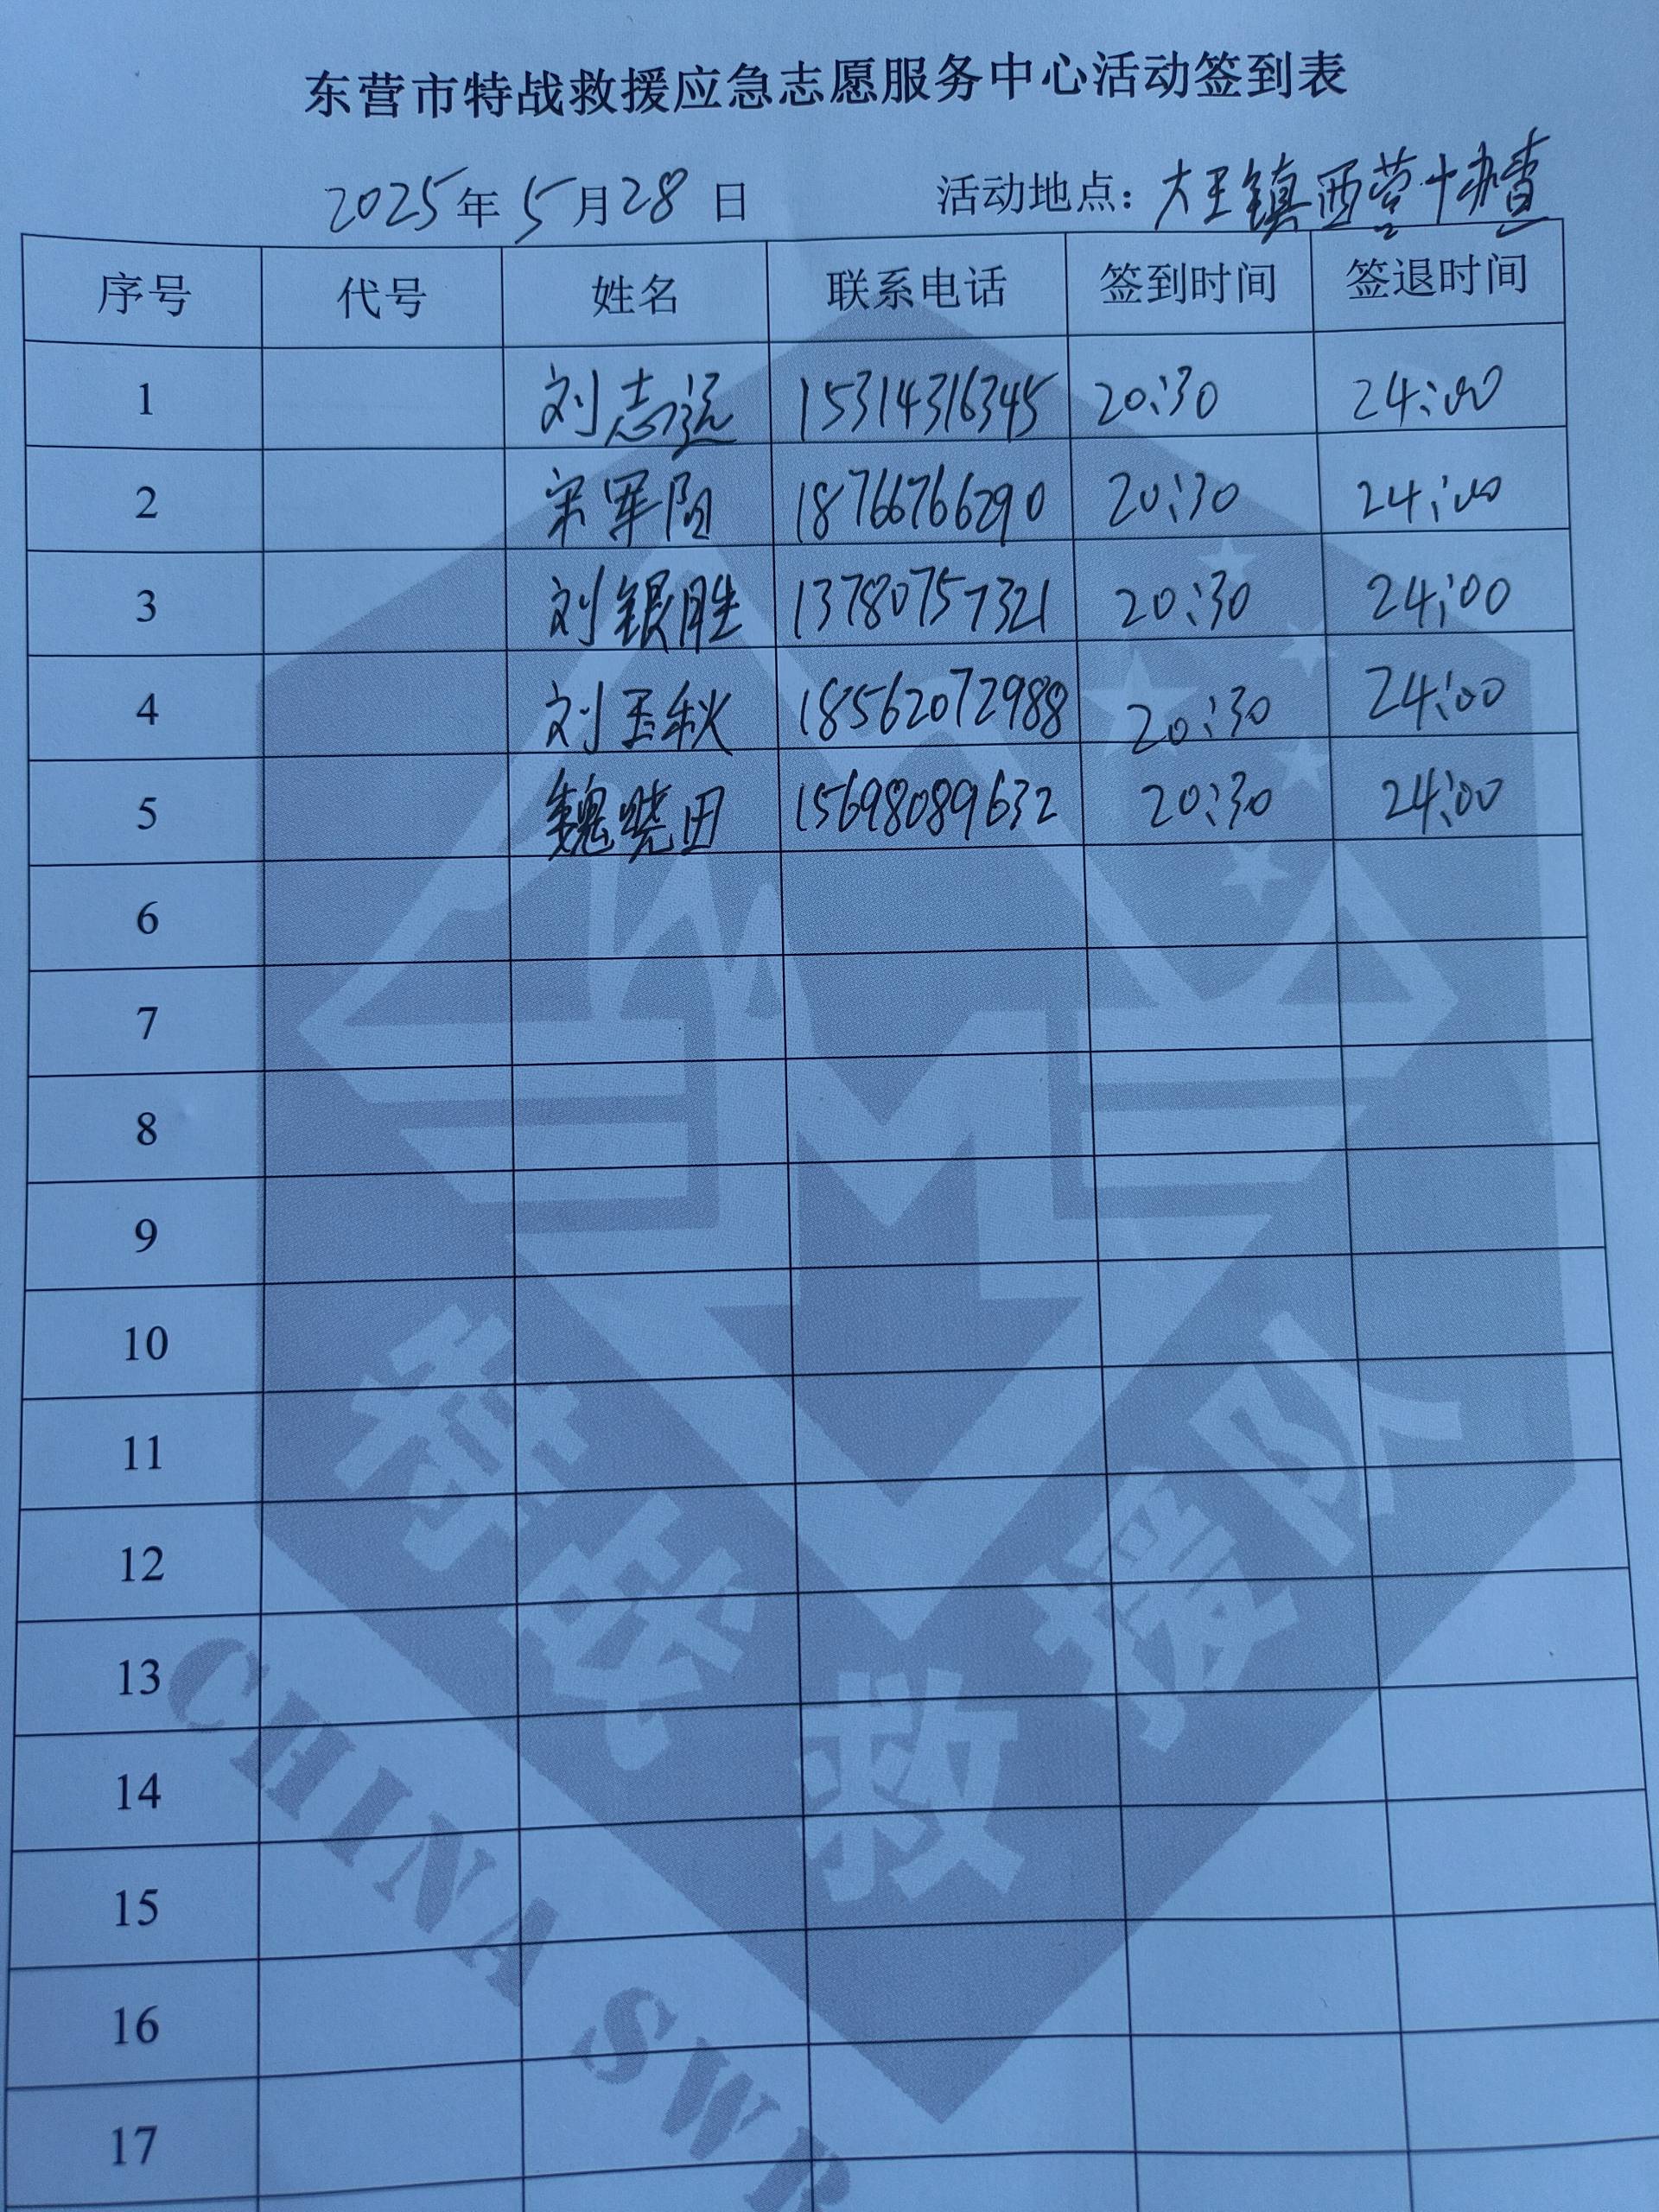 东营市特战救援应急志愿服务中心活动签到表
2025年5月28日 活动地点：大王镇西营协查
序号 代号 姓名 联系电话 签到时间 签退时间
1 刘志远 15314316345 20:30 24:00
2 宋军阳 18766766290 20:30 24:00
3 刘银胜 13780757321 20:30 24:00
4 刘玉秋 18562072988 20:30 24:00
5 魏晓田 15698089632 20:30 24:00
6
7
8
9
10
11
12
13
14
15
16
17
特战救援队
CHINA SWR